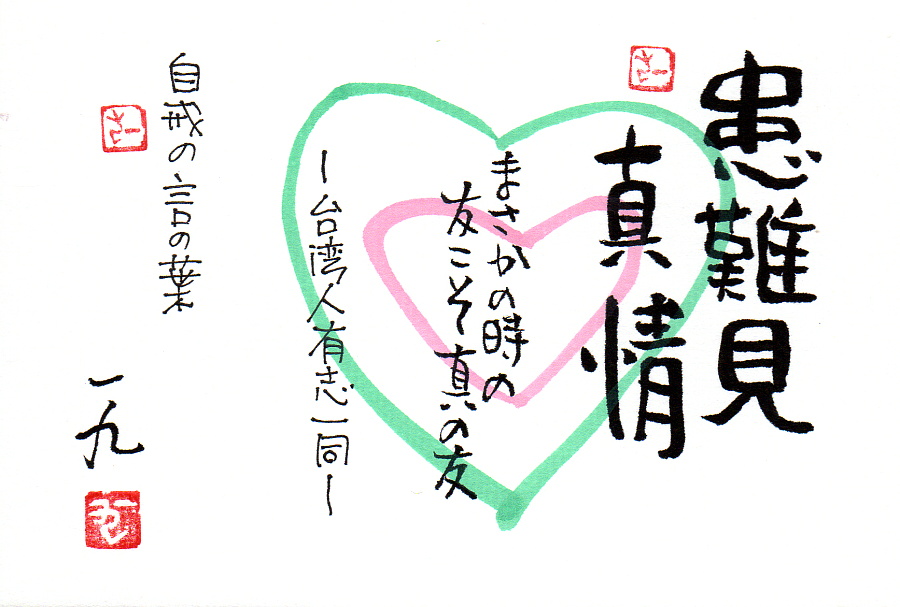 患難見
真情
まさかの時の
友こそ真の友
ー台湾人有志一同ー
自戒の言の葉
一九